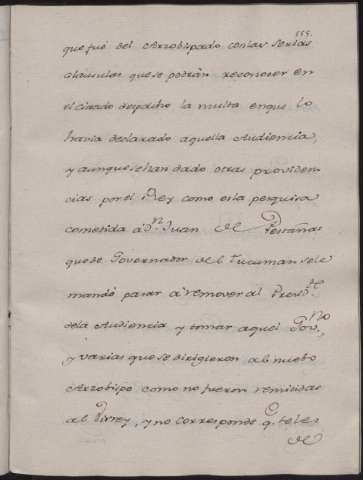 155.
que fué del Arzobispado con las serias
clausulas que se podrán reconocer en
el citado despacho la multa en que lo
havia declarado aquella Audiencia,
y aunque se han dado otras providen
cias por el Rey como es la pesquisa
cometida á Dn. Juan de Pestañas
que de Governador del Tucuman se le
mandó pasar á remover al Presid.te
de la Audiencia y tomar aquel Gov.no,
y varias que se dirigieron al nuebo
Arzobispo como no fueron remitidas
al Virrey, y no corresponde q. te le s
de